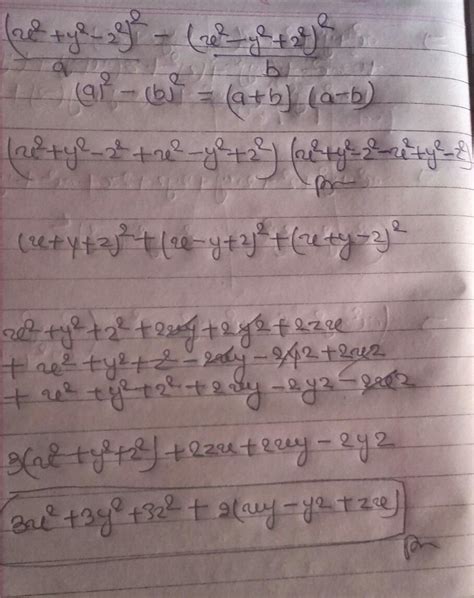 (x²+y²-z²)² - (x²-y²+z²)²
a b
(a)² - (b)² = (a+b) (a-b)
(x²+y²-z²+x²-y²+z²) (x²+y²-z²-x²+y²-z²)
(x+y+z)² + (x-y+z)² + (x+y-z)²
x²+y²+z²+2xy+2yz+2zx
+ x²+y²+z-2xy-2yz+2xz
+ x²+y²+z²+2xy-2yz-2xz
3(x²+y²+z²)+2zx+2xy-2yz
3x²+3y²+3z²+2(xy-yz+zx)